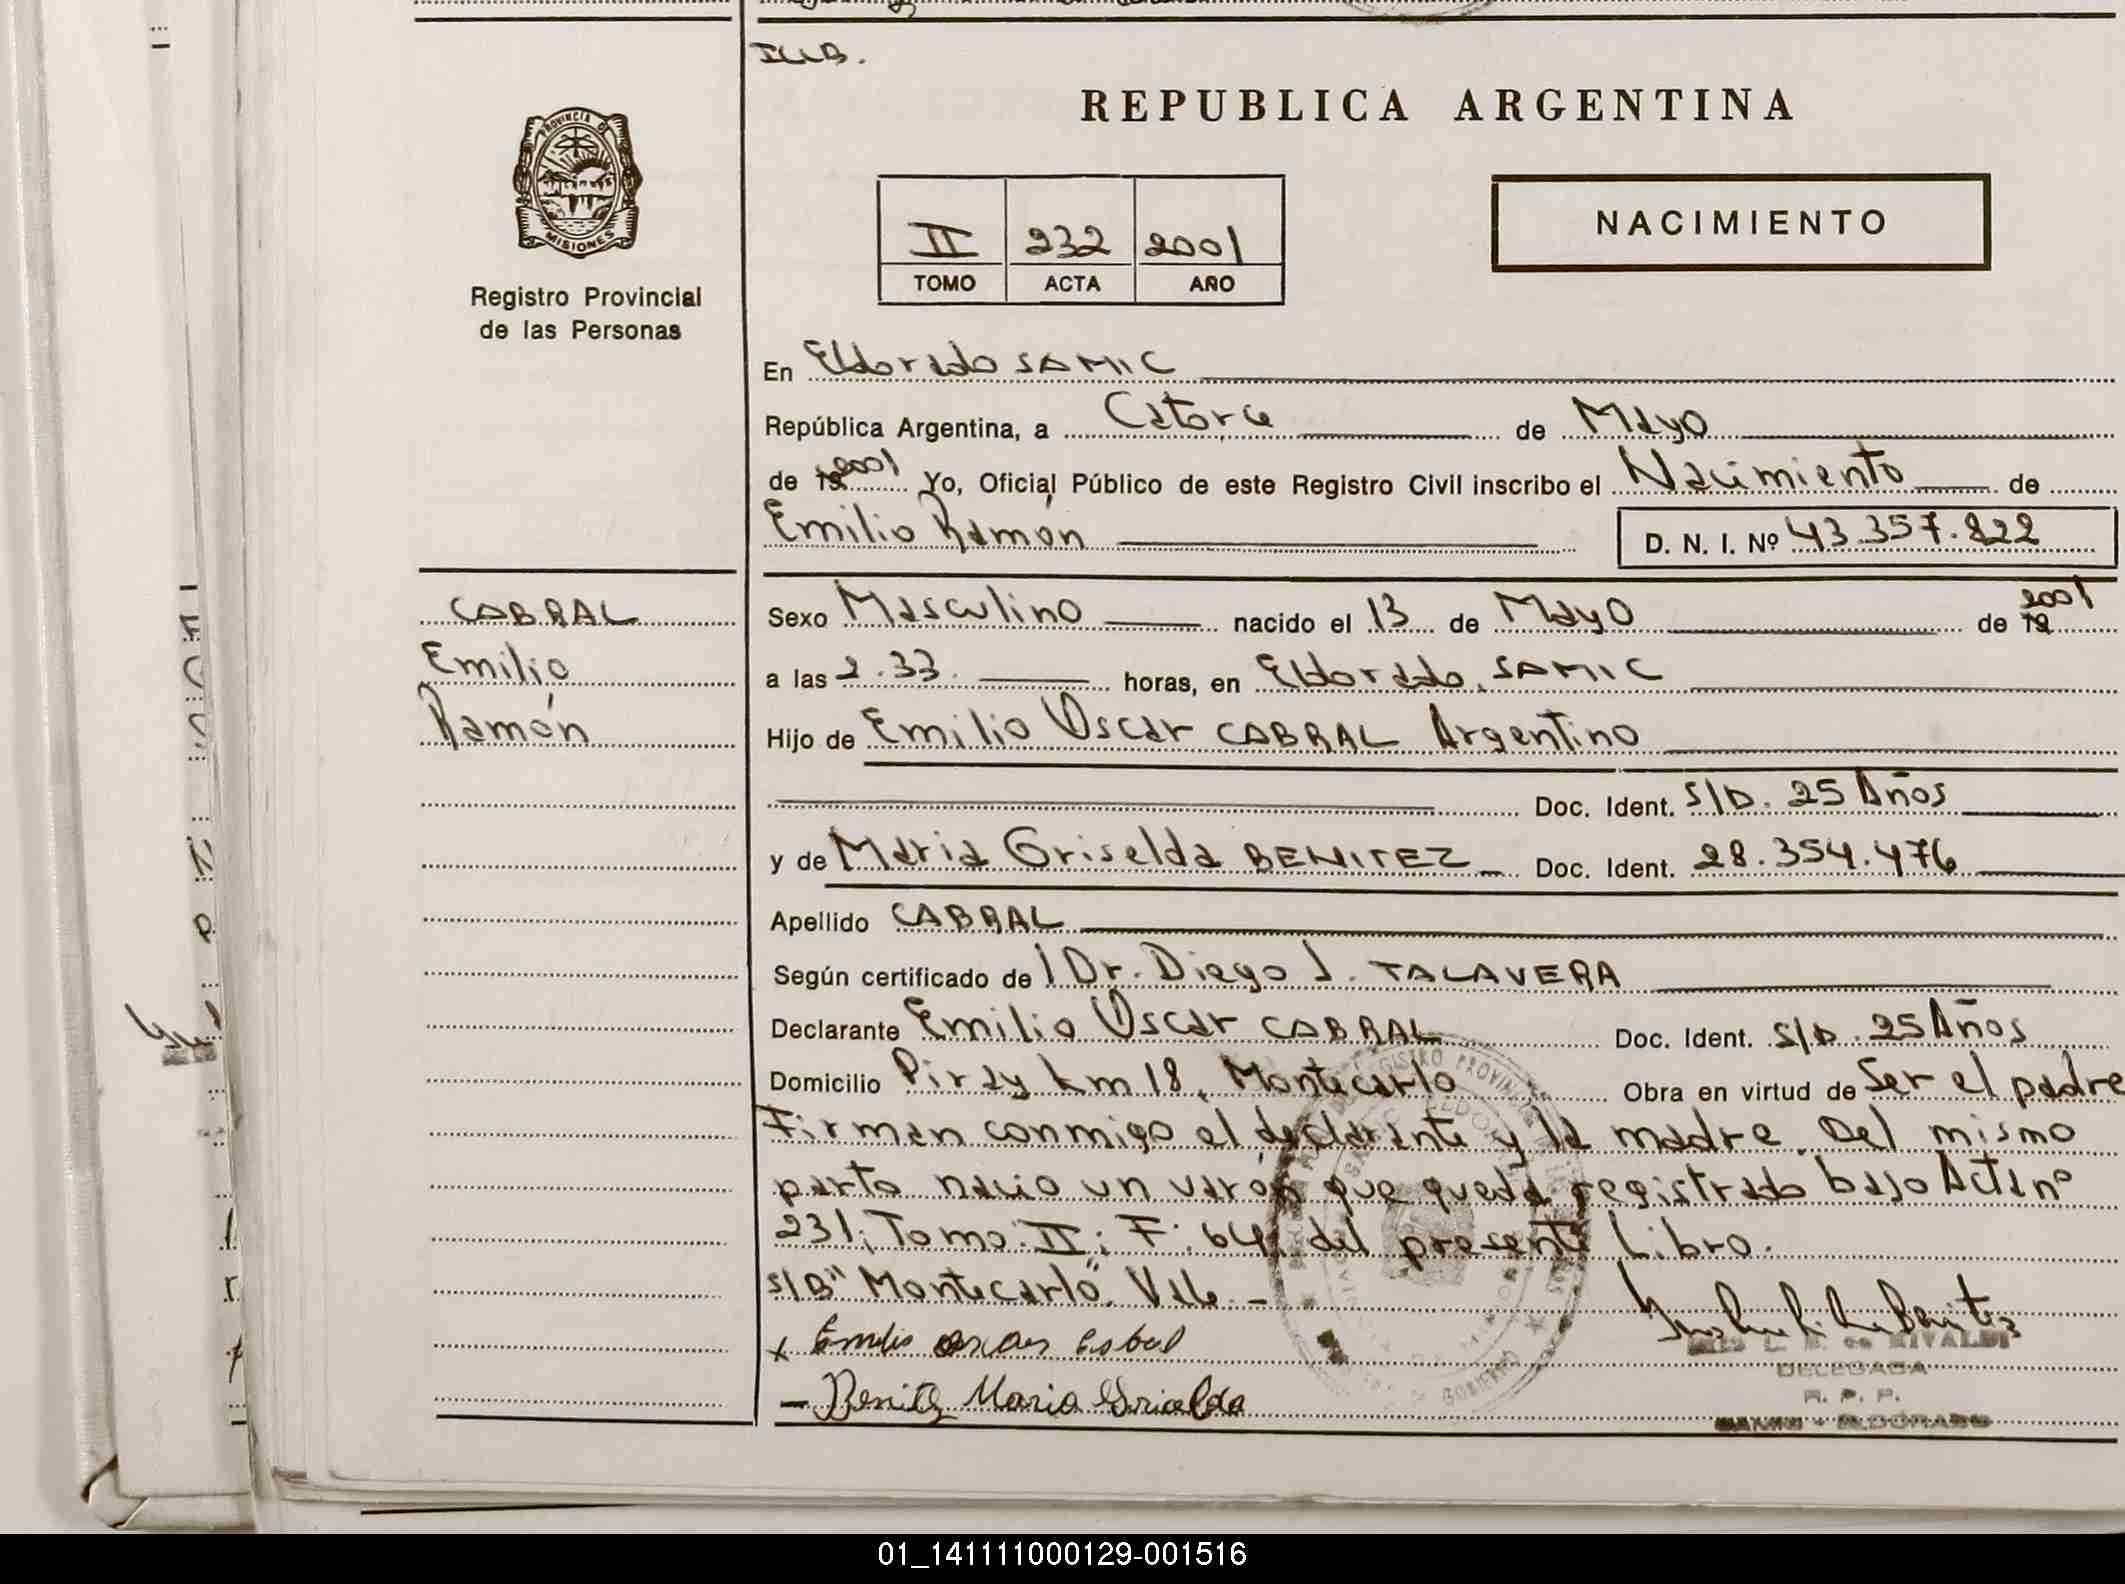 REPUBLICA ARGENTINA
PROVINCIA D
MISIONES
Registro Provincial
de las Personas
II 232 2001
TOMO ACTA AÑO
NACIMIENTO
En Eldorado SAMIC
República Argentina, a Catorce de Mayo
de 19 2001 Yo, Oficial Público de este Registro Civil inscribo el Nacimiento de
Emilio Ramón D. N. I. Nº 43.357.822
CABRAL
Emilio
Ramón
Sexo Masculino nacido el 13 de Mayo de 19 2001
a las 2.33 horas, en Eldorado. SAMIC
Hijo de Emilio Oscar CABRAL Argentino
Doc. Ident. S/D. 25 Años
y de Maria Griselda BENITEZ Doc. Ident. 28.354.476
Apellido CABRAL
Según certificado de Dr. Diego J. TALAVERA
Declarante Emilio Oscar CABRAL Doc. Ident. S/D. 25 Años
Domicilio Piray km 18, Montecarlo Obra en virtud de Ser el padre
Firman conmigo el declarante y la madre. Del mismo
parto nacio un varón que queda registrado bajo Acta nº
231; Tomo: II; F: 64; del presente Libro.
S/B "Montecarlo". Vale. -
x Emilio oscar Cabral
- Benitez Maria Griselda
DE RIVALDI
DELEGADA
R. P. P.
SAMIC - ELDORADO
01_141111000129-001516